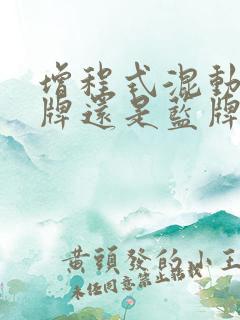 增程式混動
牌還是藍牌
黃頭發的小王
未经同意禁止转载